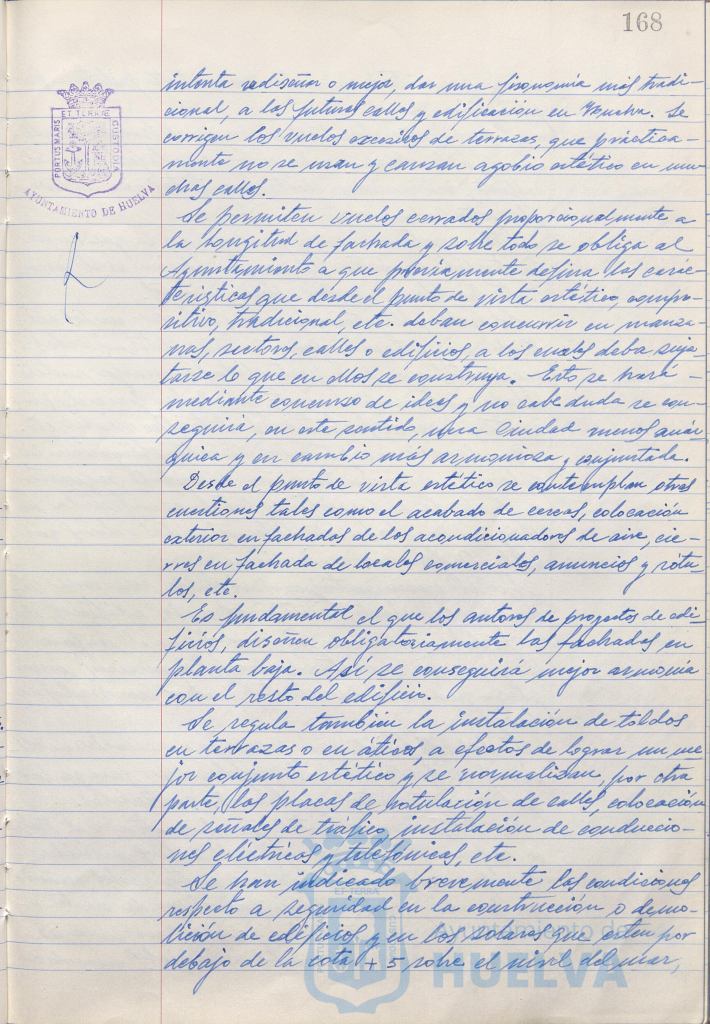 168
PORTUS MARIS
ET TERRÆ
CUSTODIA
AYUNTAMIENTO DE HUELVA
intenta rediseñar o mejor, dar una fisonomía más tradi-
cional, a las futuras calles y edificación en Huelva. Se
corrigen los vuelos excesivos de terrazas, que práctica-
mente no se usan y causan agobio estético en mu-
chas calles.
Se permiten vuelos cerrados proporcionalmente a
la longitud de fachada y sobre todo se obliga al
Ayuntamiento a que previamente defina las carac-
terísticas que desde el punto de vista estético, compo-
sitivo, tradicional, etc. deban concurrir en manza-
nas, sectores, calles o edificios, a los cuales deba suje-
tarse lo que en ellos se construya. Esto se hará -
mediante concurso de ideas y no cabe duda se con-
seguirá, en este sentido, una Ciudad menos anár-
quica y en cambio más armoniosa y conjuntada.
Desde el punto de vista estético se contemplan otras
cuestiones tales como el acabado de cercas, colocación
exterior en fachadas de los acondicionadores de aire, cie-
rres en fachada de locales comerciales, anuncios y rótu-
los, etc.
Es fundamental el que los autores de proyectos de edi-
ficios, diseñen obligatoriamente las fachadas en
planta baja. Así se conseguirá mejor armonía
con el resto del edificio.
Se regula también la instalación de toldos
en terrazas o en áticos, a efectos de lograr un me-
jor conjunto estético y se normalizan, por otra
parte, las placas de rotulación de calles, colocación
de señales de tráfico, instalación de conduccio-
nes eléctricas y telefónicas, etc.
Se han indicado brevemente las condiciones
respecto a seguridad en la construcción o demo-
lición de edificios y en los solares que estén por
debajo de la cota + 5 sobre el nivel del mar,
ET TERRA
Ayuntamiento de
HUELVA